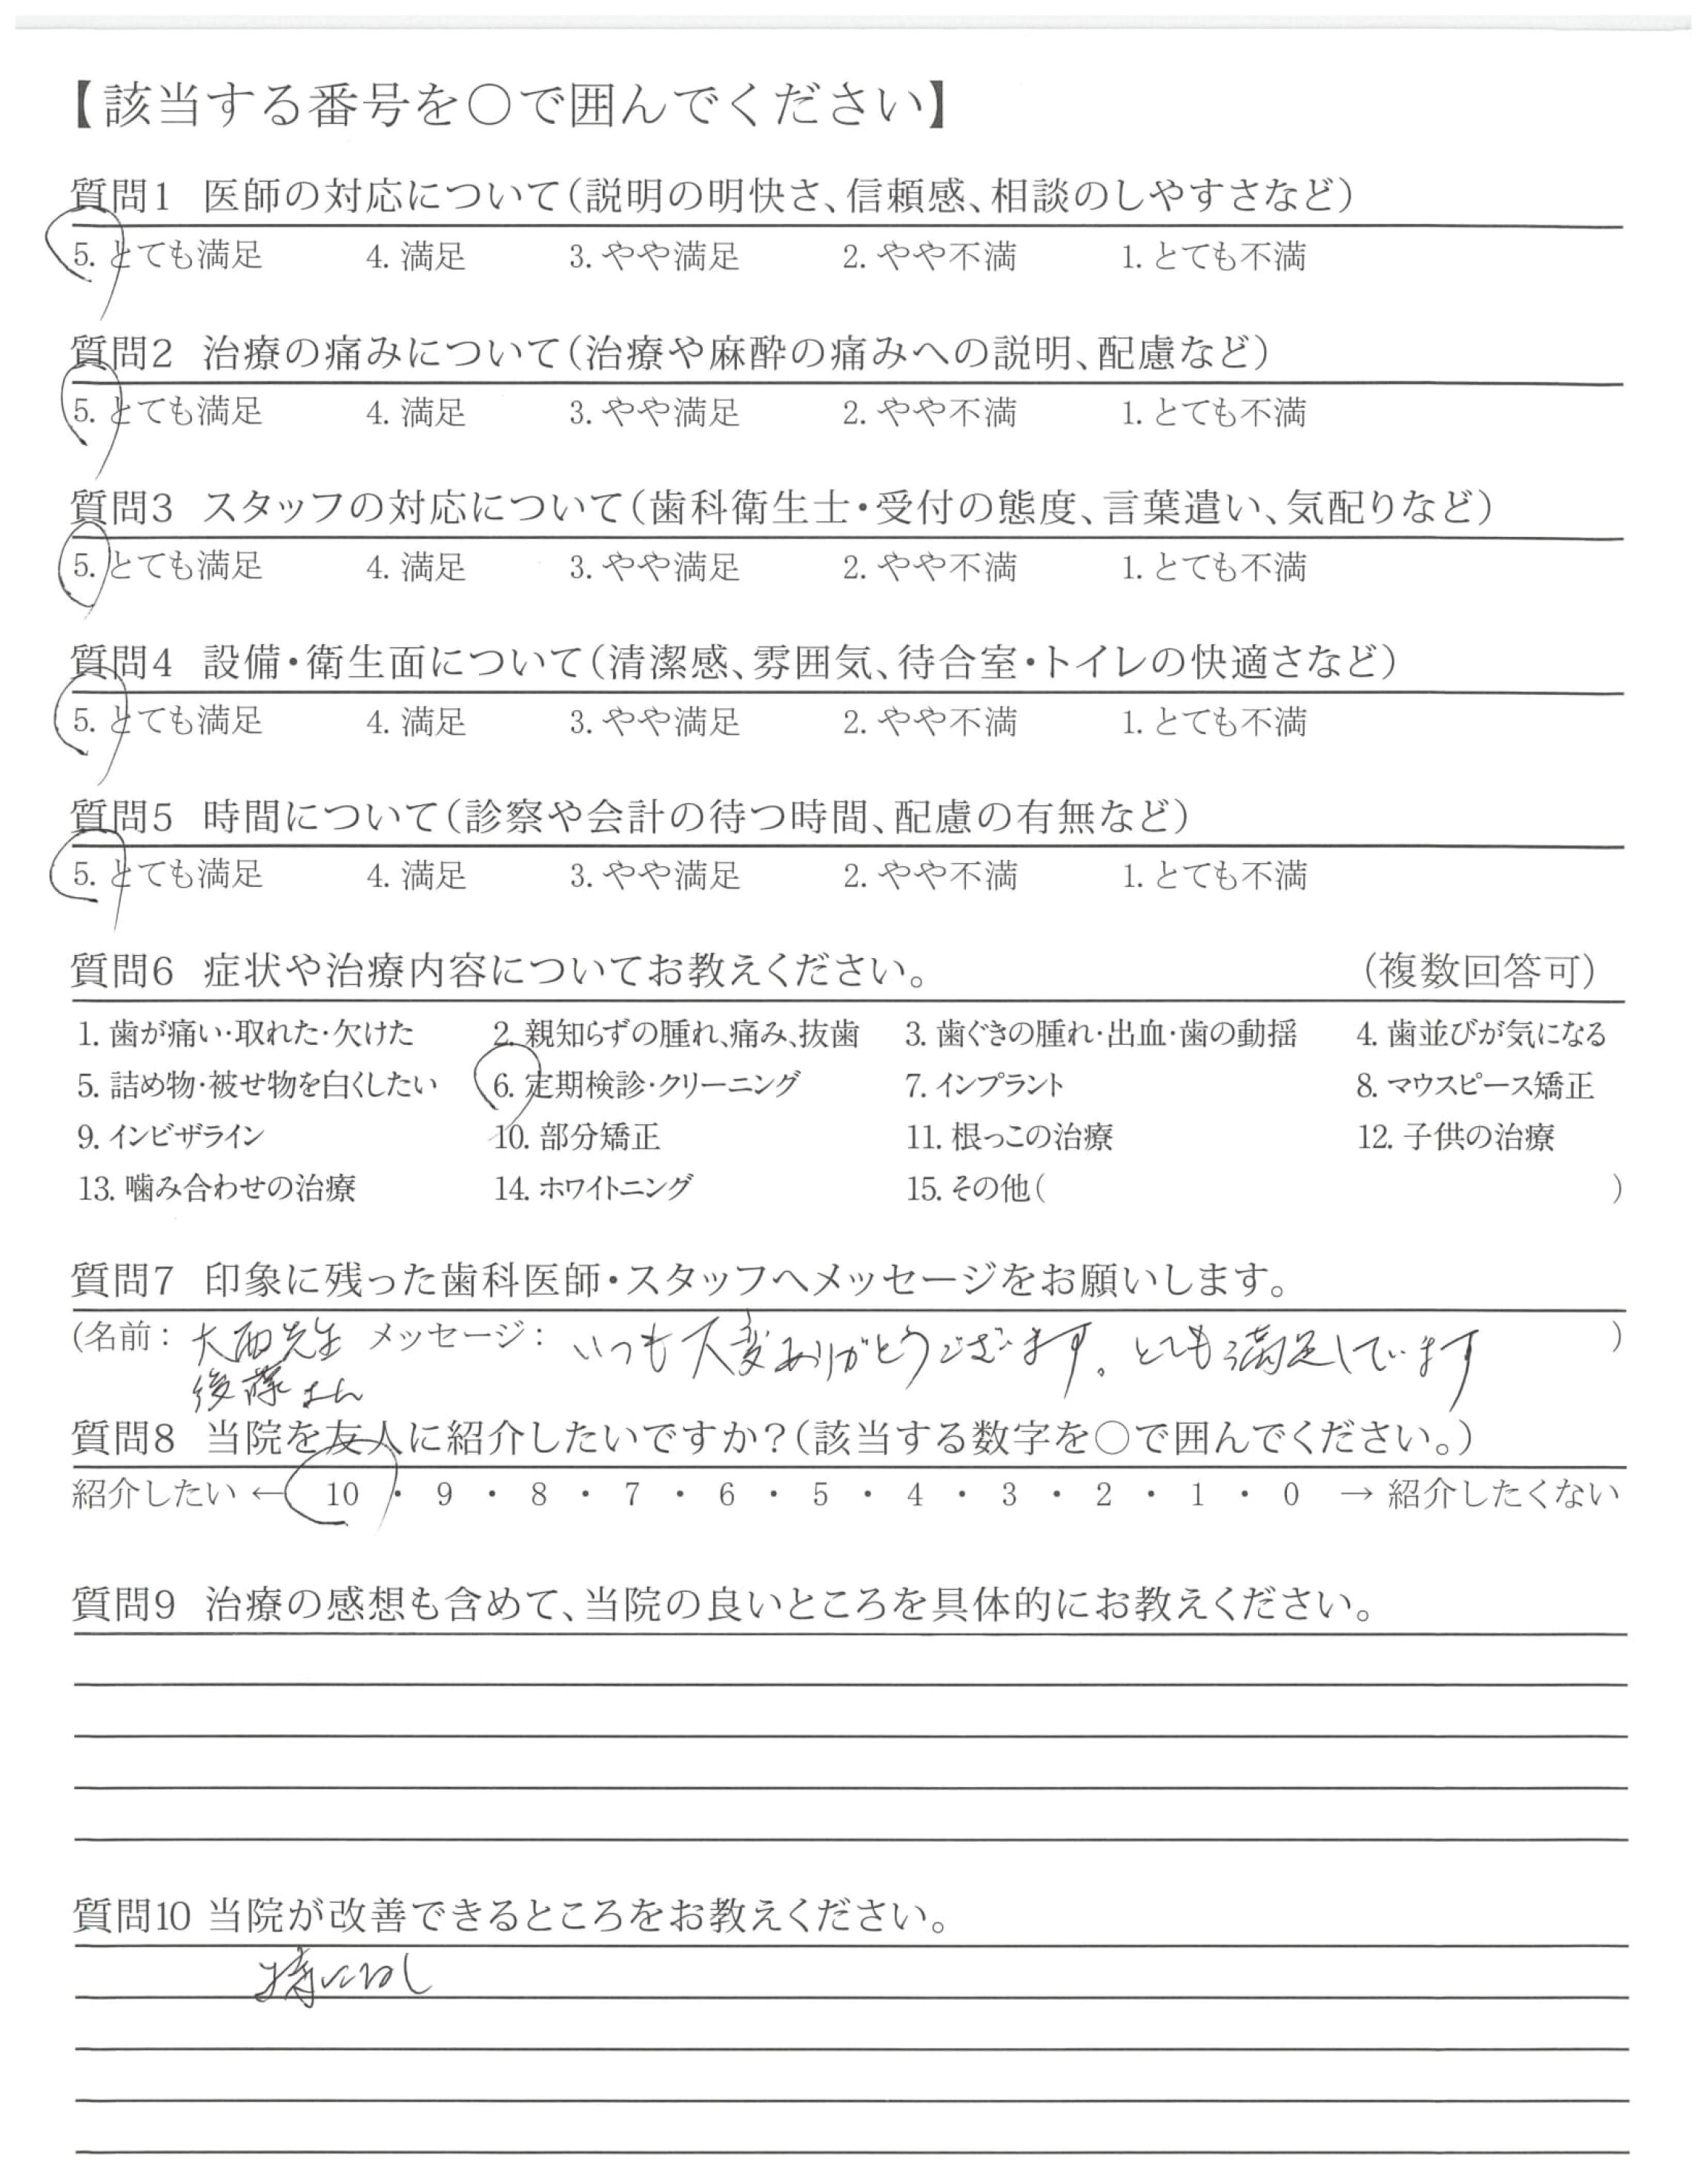 【該当する番号を○で囲んでください】
質問1 医師の対応について(説明の明快さ、信頼感、相談のしやすさなど)
5. とても満足 4. 満足 3. やや満足 2. やや不満 1. とても不満
質問2 治療の痛みについて(治療や麻酔の痛みへの説明、配慮など)
5. とても満足 4. 満足 3. やや満足 2. やや不満 1. とても不満
質問3 スタッフの対応について(歯科衛生士・受付の態度、言葉遣い、気配りなど)
5. とても満足 4. 満足 3. やや満足 2. やや不満 1. とても不満
質問4 設備・衛生面について(清潔感、雰囲気、待合室・トイレの快適さなど)
5. とても満足 4. 満足 3. やや満足 2. やや不満 1. とても不満
質問5 時間について(診察や会計の待つ時間、配慮の有無など)
5. とても満足 4. 満足 3. やや満足 2. やや不満 1. とても不満
質問6 症状や治療内容についてお教えください。 (複数回答可)
1. 歯が痛い・取れた・欠けた 2. 親知らずの腫れ、痛み、抜歯 3. 歯ぐきの腫れ・出血・歯の動揺 4. 歯並びが気になる
5. 詰め物・被せ物を白くしたい 6. 定期検診・クリーニング 7. インプラント 8. マウスピース矯正
9. インビザライン 10. 部分矯正 11. 根っこの治療 12. 子供の治療
13. 噛み合わせの治療 14. ホワイトニング 15. その他( )
質問7 印象に残った歯科医師・スタッフへメッセージをお願いします。
(名前: 大西先生 メッセージ: いつも大変ありがとうございます。とても満足しています )
後藤さん
質問8 当院を友人に紹介したいですか?(該当する数字を○で囲んでください。)
紹介したい ← 10 ・ 9 ・ 8 ・ 7 ・ 6 ・ 5 ・ 4 ・ 3 ・ 2 ・ 1 ・ 0 → 紹介したくない
質問9 治療の感想も含めて、当院の良いところを具体的にお教えください。
質問10 当院が改善できるところをお教えください。
特になし